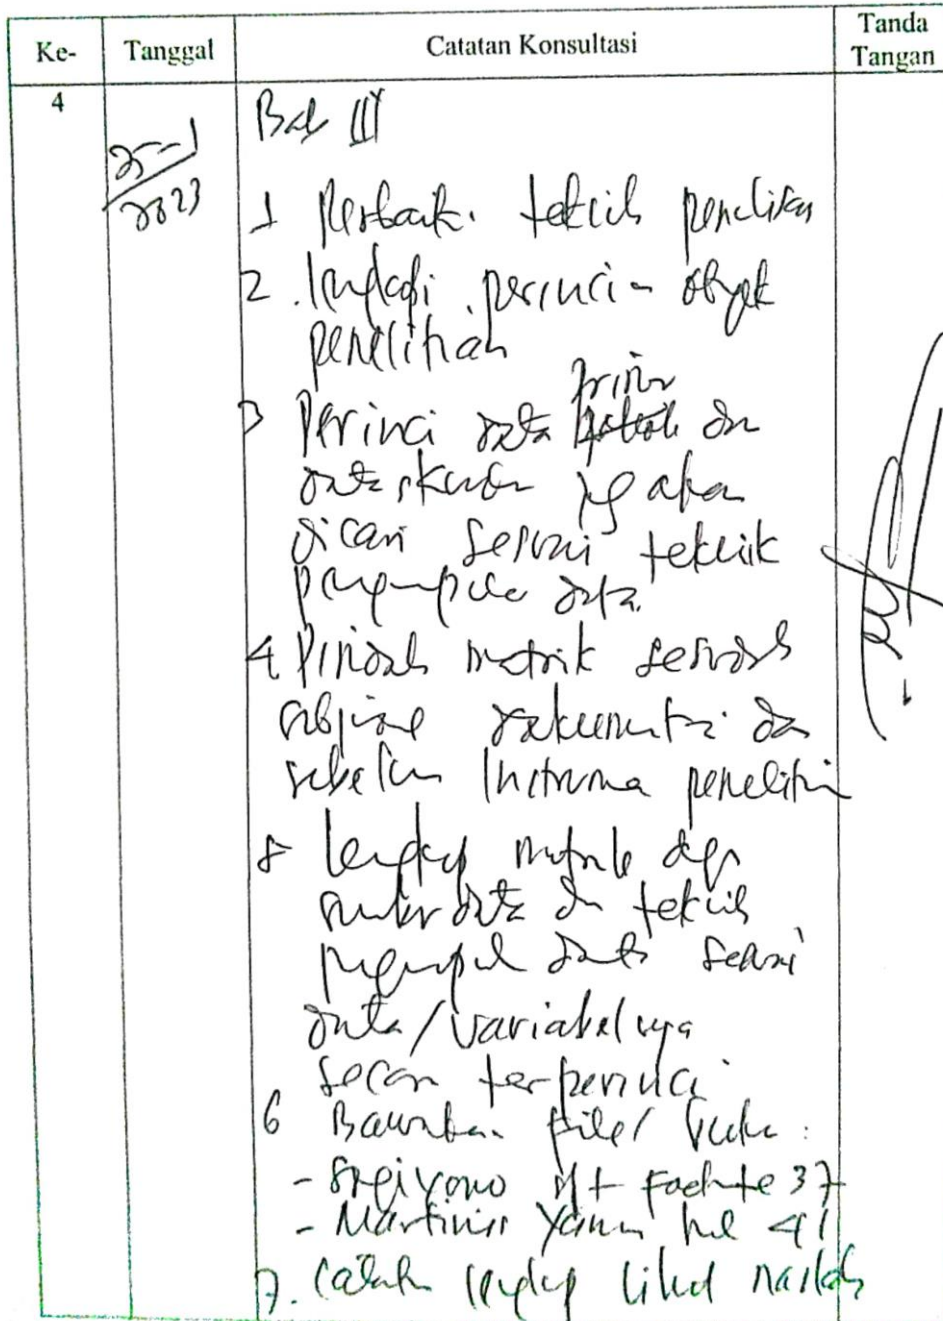 Ke- Tanggal Catatan Konsultasi Tanda Tangan
4
25-1
2023
Bab III
1 Perbaiki teknik penelitian
2. lengkapi perincian obyek
penelitian
3 Perinci data primer dan
data skunder yg akan
dicari sesuai teknik
pengumpulan data.
4. Pindah matrik sesudah
dokumentasi dan
sebelum Instrumen penelitian
5 lengkapi matrik dgn
sumber data dan teknik
pengumpul data sesuai
data/variabelnya
secara terperinci
6 Bawakan file/buku:
- Sugiyono footnote 37
- Martinis Yamin hal 41
7. Catatan lengkap lihat naskah